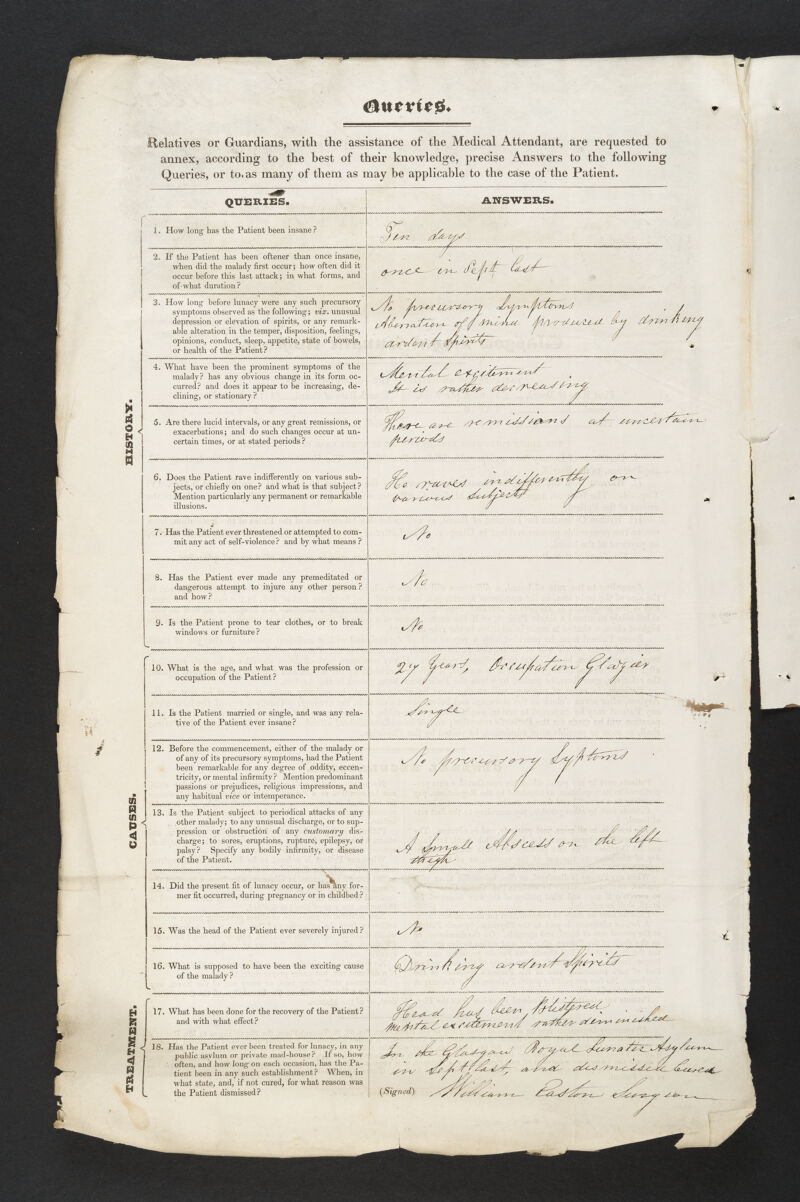 Queries.
Relatives or Guardians, with the assistance of the Medical Attendant, are requested to
annex, according to the best of their knowledge, precise Answers to the following
Queries, or to as many of them as may be applicable to the case of the Patient.
QUERIES.
ANSWERS.
HISTORY.
1. How long has the Patient been insane?
Ten days
2. If the Patient has been oftener than once insane,
when did the malady first occur; how often did it
occur before this last attack; in what forms, and
of what duration?
once in Sept last
3. How long before lunacy were any such precursory
symptoms observed as the following; viz. unusual
depression or elevation of spirits, or any remark-
able alteration in the temper, disposition, feelings,
opinions, conduct, sleep, appetite, state of bowels,
or health of the Patient?
No precursory Symptoms
Aberration of mind produced by drinking
ardent Spirits
4. What have been the prominent symptoms of the
malady? has any obvious change in its form oc-
curred? and does it appear to be increasing, de-
clining, or stationary?
Mental excitement
It is rather decreasing
5. Are there lucid intervals, or any great remissions, or
exacerbations; and do such changes occur at un-
certain times, or at stated periods?
There are remissions at uncertain
periods
6. Does the Patient rave indifferently on various sub-
jects, or chiefly on one? and what is that subject?
Mention particularly any permanent or remarkable
illusions.
He raves indifferently on
various Subjects
7. Has the Patient ever threatened or attempted to com-
mit any act of self-violence? and by what means?
No
8. Has the Patient ever made any premeditated or
dangerous attempt to injure any other person?
and how?
No
9. Is the Patient prone to tear clothes, or to break
windows or furniture?
No
CAUSES.
10. What is the age, and what was the profession or
occupation of the Patient?
27 Years, Occupation Glazier
11. Is the Patient married or single, and was any rela-
tive of the Patient ever insane?
Single
12. Before the commencement, either of the malady or
of any of its precursory symptoms, had the Patient
been remarkable for any degree of oddity, eccen-
tricity, or mental infirmity? Mention predominant
passions or prejudices, religious impressions, and
any habitual vice or intemperance.
No precursory Syptoms
13. Is the Patient subject to periodical attacks of any
other malady; to any unusual discharge, or to sup-
pression or obstruction of any customary dis-
charge; to sores, eruptions, rupture, epilepsy, or
palsy? Specify any bodily infirmity, or disease
of the Patient.
A Small Abscess on the left
thigh
14. Did the present fit of lunacy occur, or has any for-
mer fit occurred, during pregnancy or in childbed?
15. Was the head of the Patient ever severely injured?
No
16. What is supposed to have been the exciting cause
of the malady?
Drinking ardent Spirits
TREATMENT.
17. What has been done for the recovery of the Patient?
and with what effect?
Head has been Blistered
Mental excitement rather diminished
18. Has the Patient ever been treated for lunacy, in any
public asylum or private mad-house? If so, how
often, and how long on each occasion, has the Pa-
tient been in any such establishment? When, in
what state, and, if not cured, for what reason was
the Patient dismissed?
In the Glasgow Royal Lunatic Asylum
in Sept last, and dismissed Cured
(Signed) William Easton Surgeon